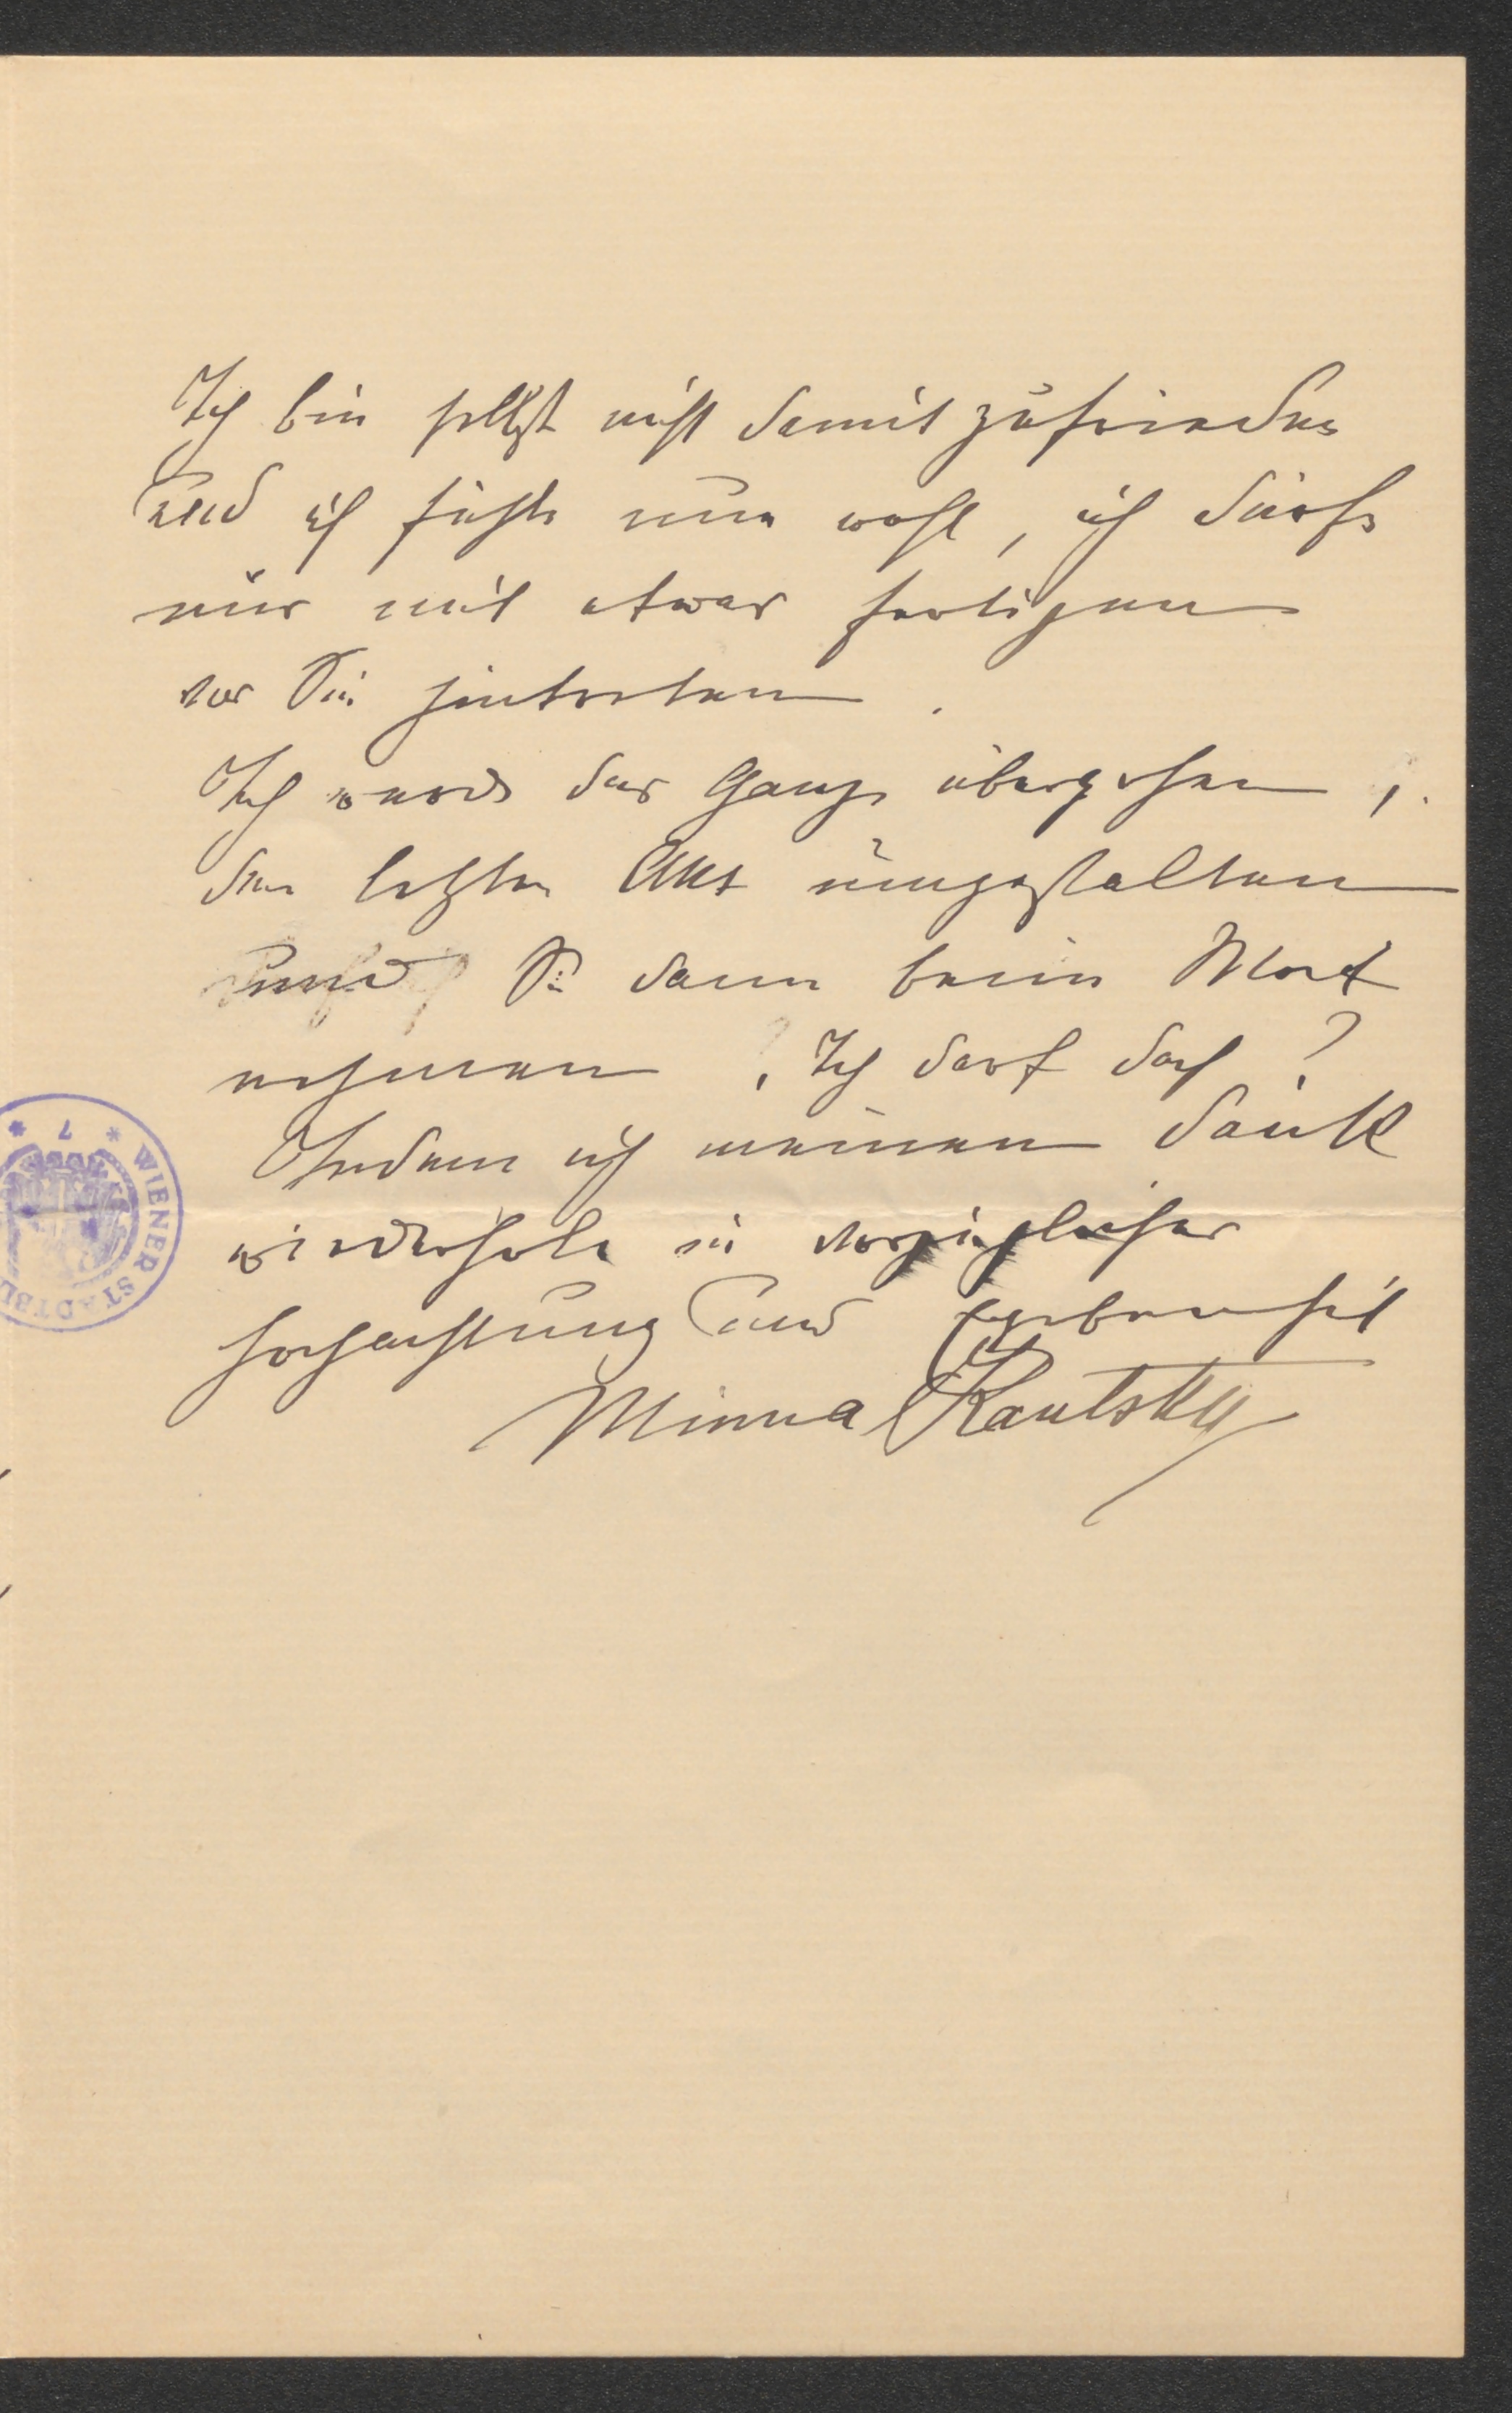 Ich bin selbst nicht damit zufrieden
und ich fühle nun wohl, ich dürfe
nur mit etwas fertigem
vor Sie hintreten.
Ich werde das Ganze übergehen,
den letzten Akt umgestalten
und Sie dann beim Wort
nehmen. Ich darf doch?
Indem ich meinen Dank
wiederhole in vorzüglicher
Hochachtung und Ergebenheit
Minna Kautsky
* 7 * WIENER STADTBI